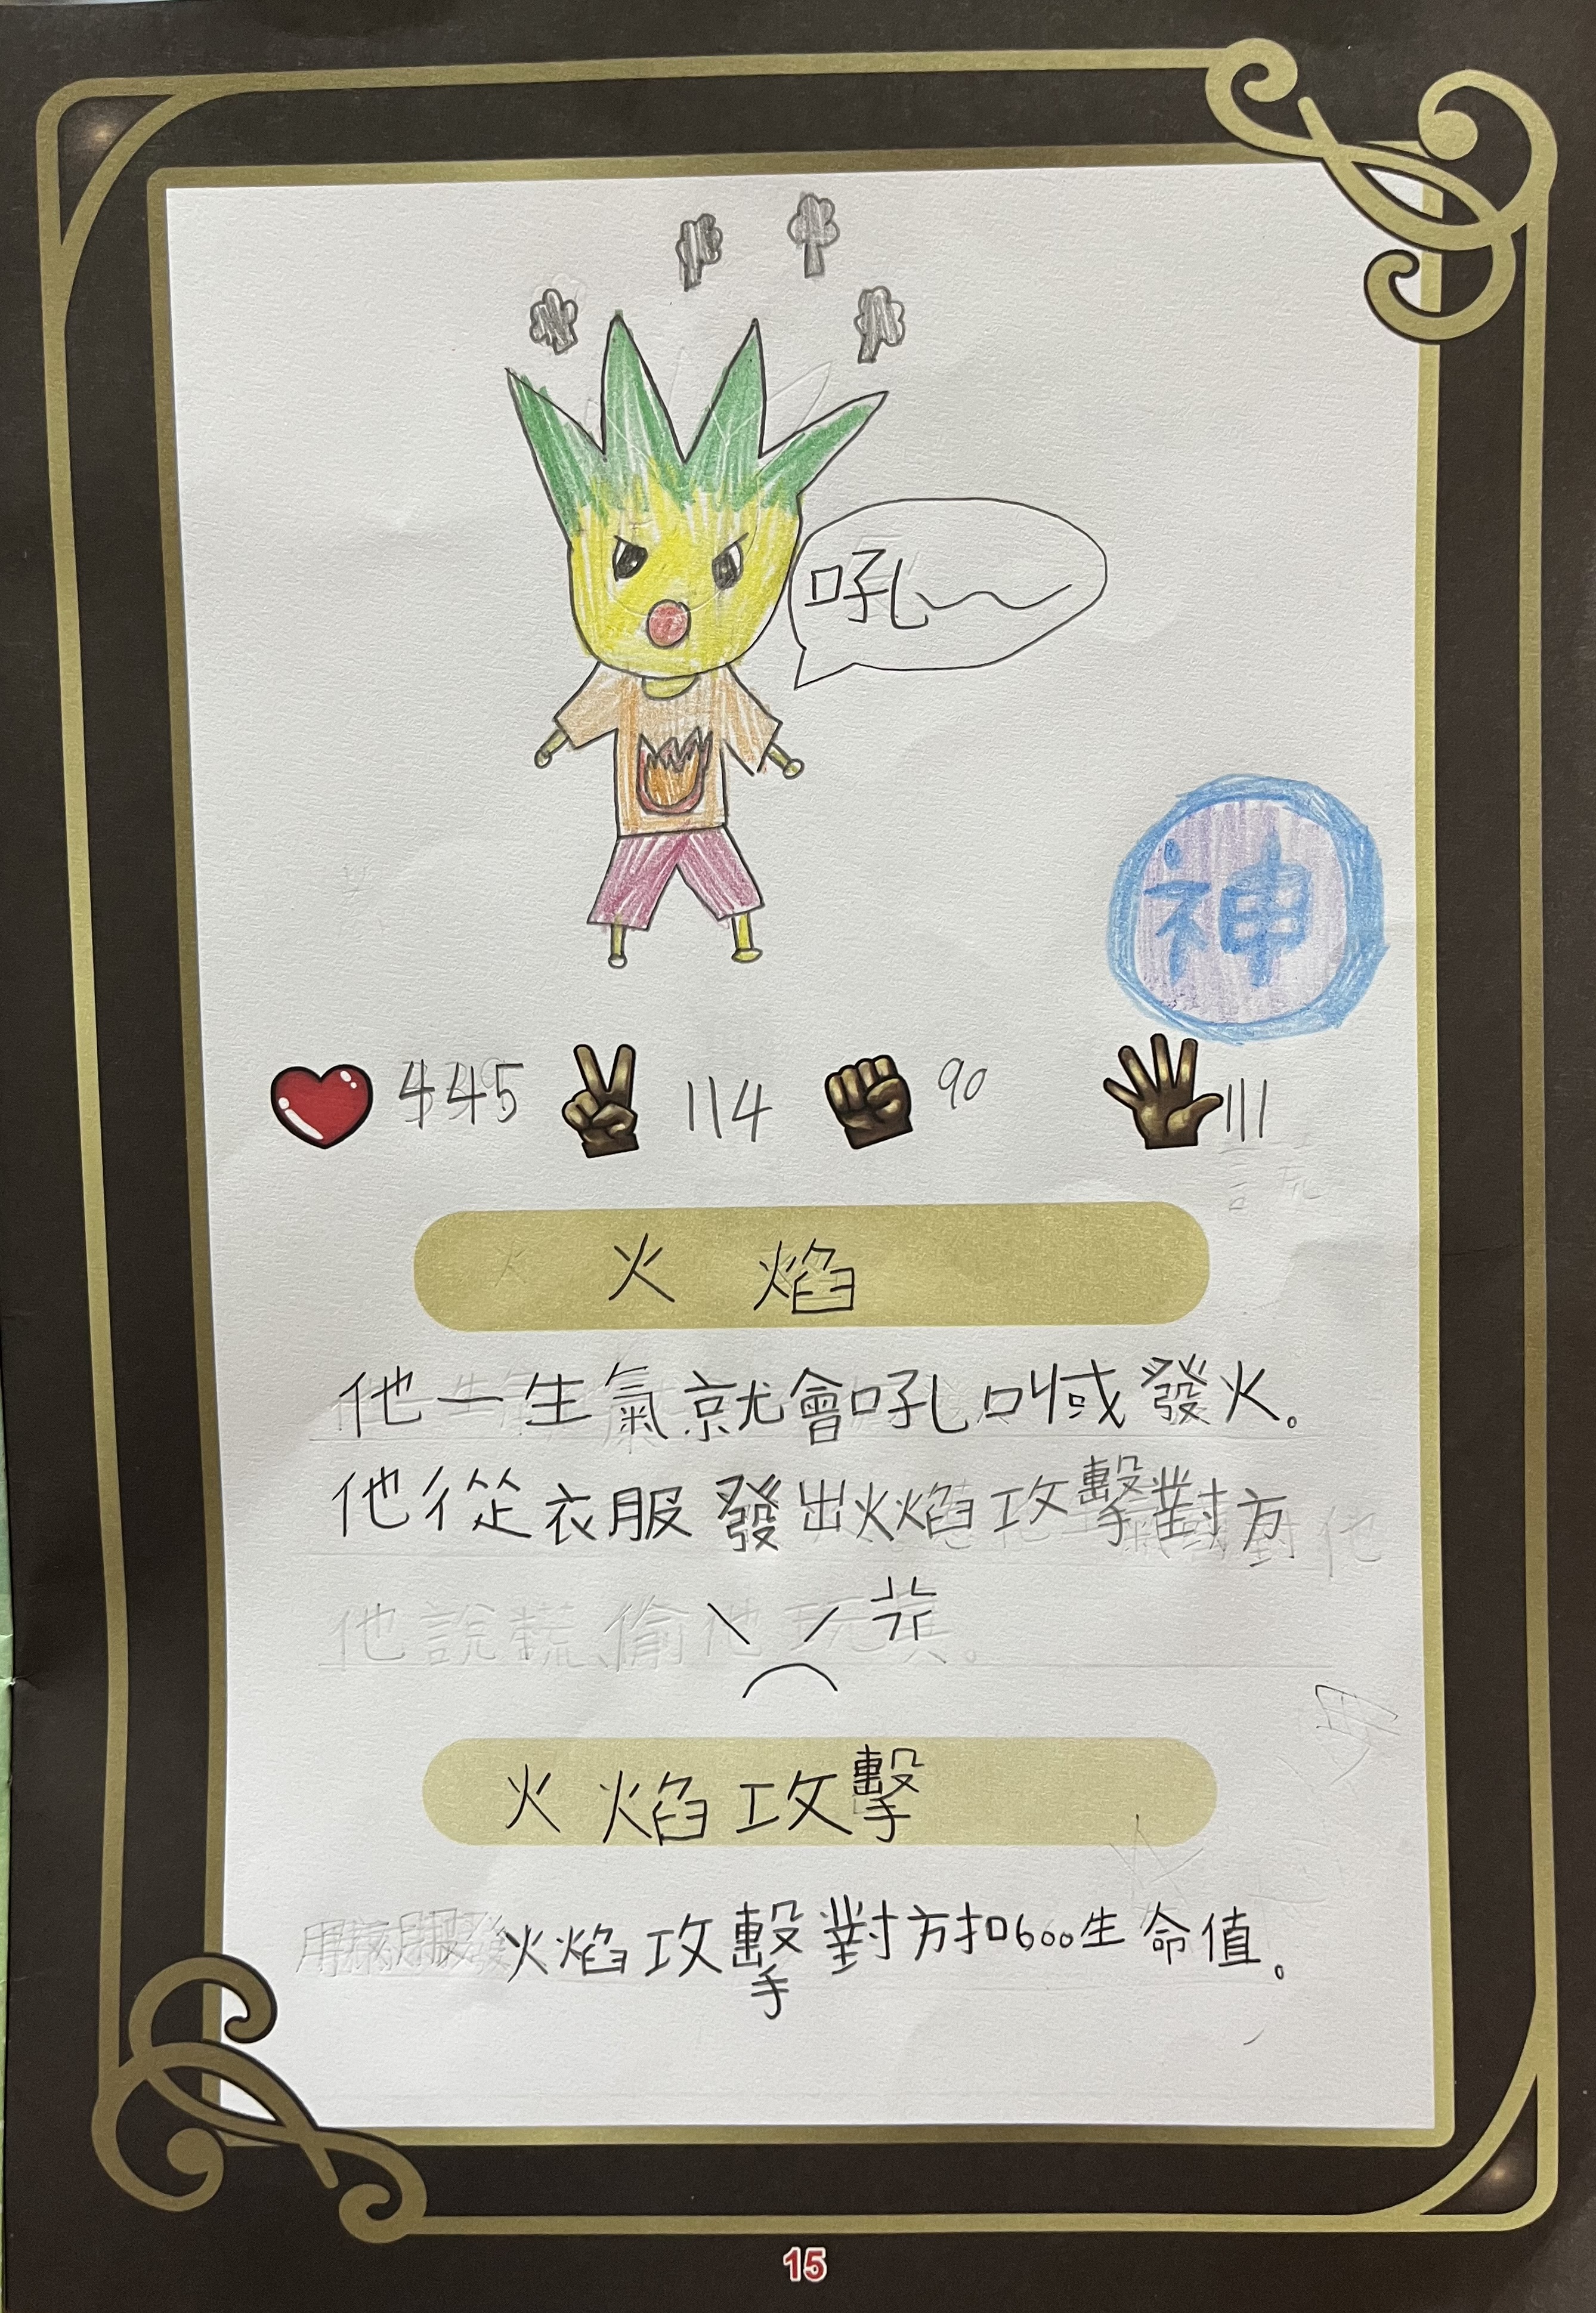 吼
神
445 114 90 111
火焰
他一生氣就會吼叫或發火。
他從衣服發出火焰攻擊對方
火焰攻擊
火焰攻擊對方扣600生命值。
15